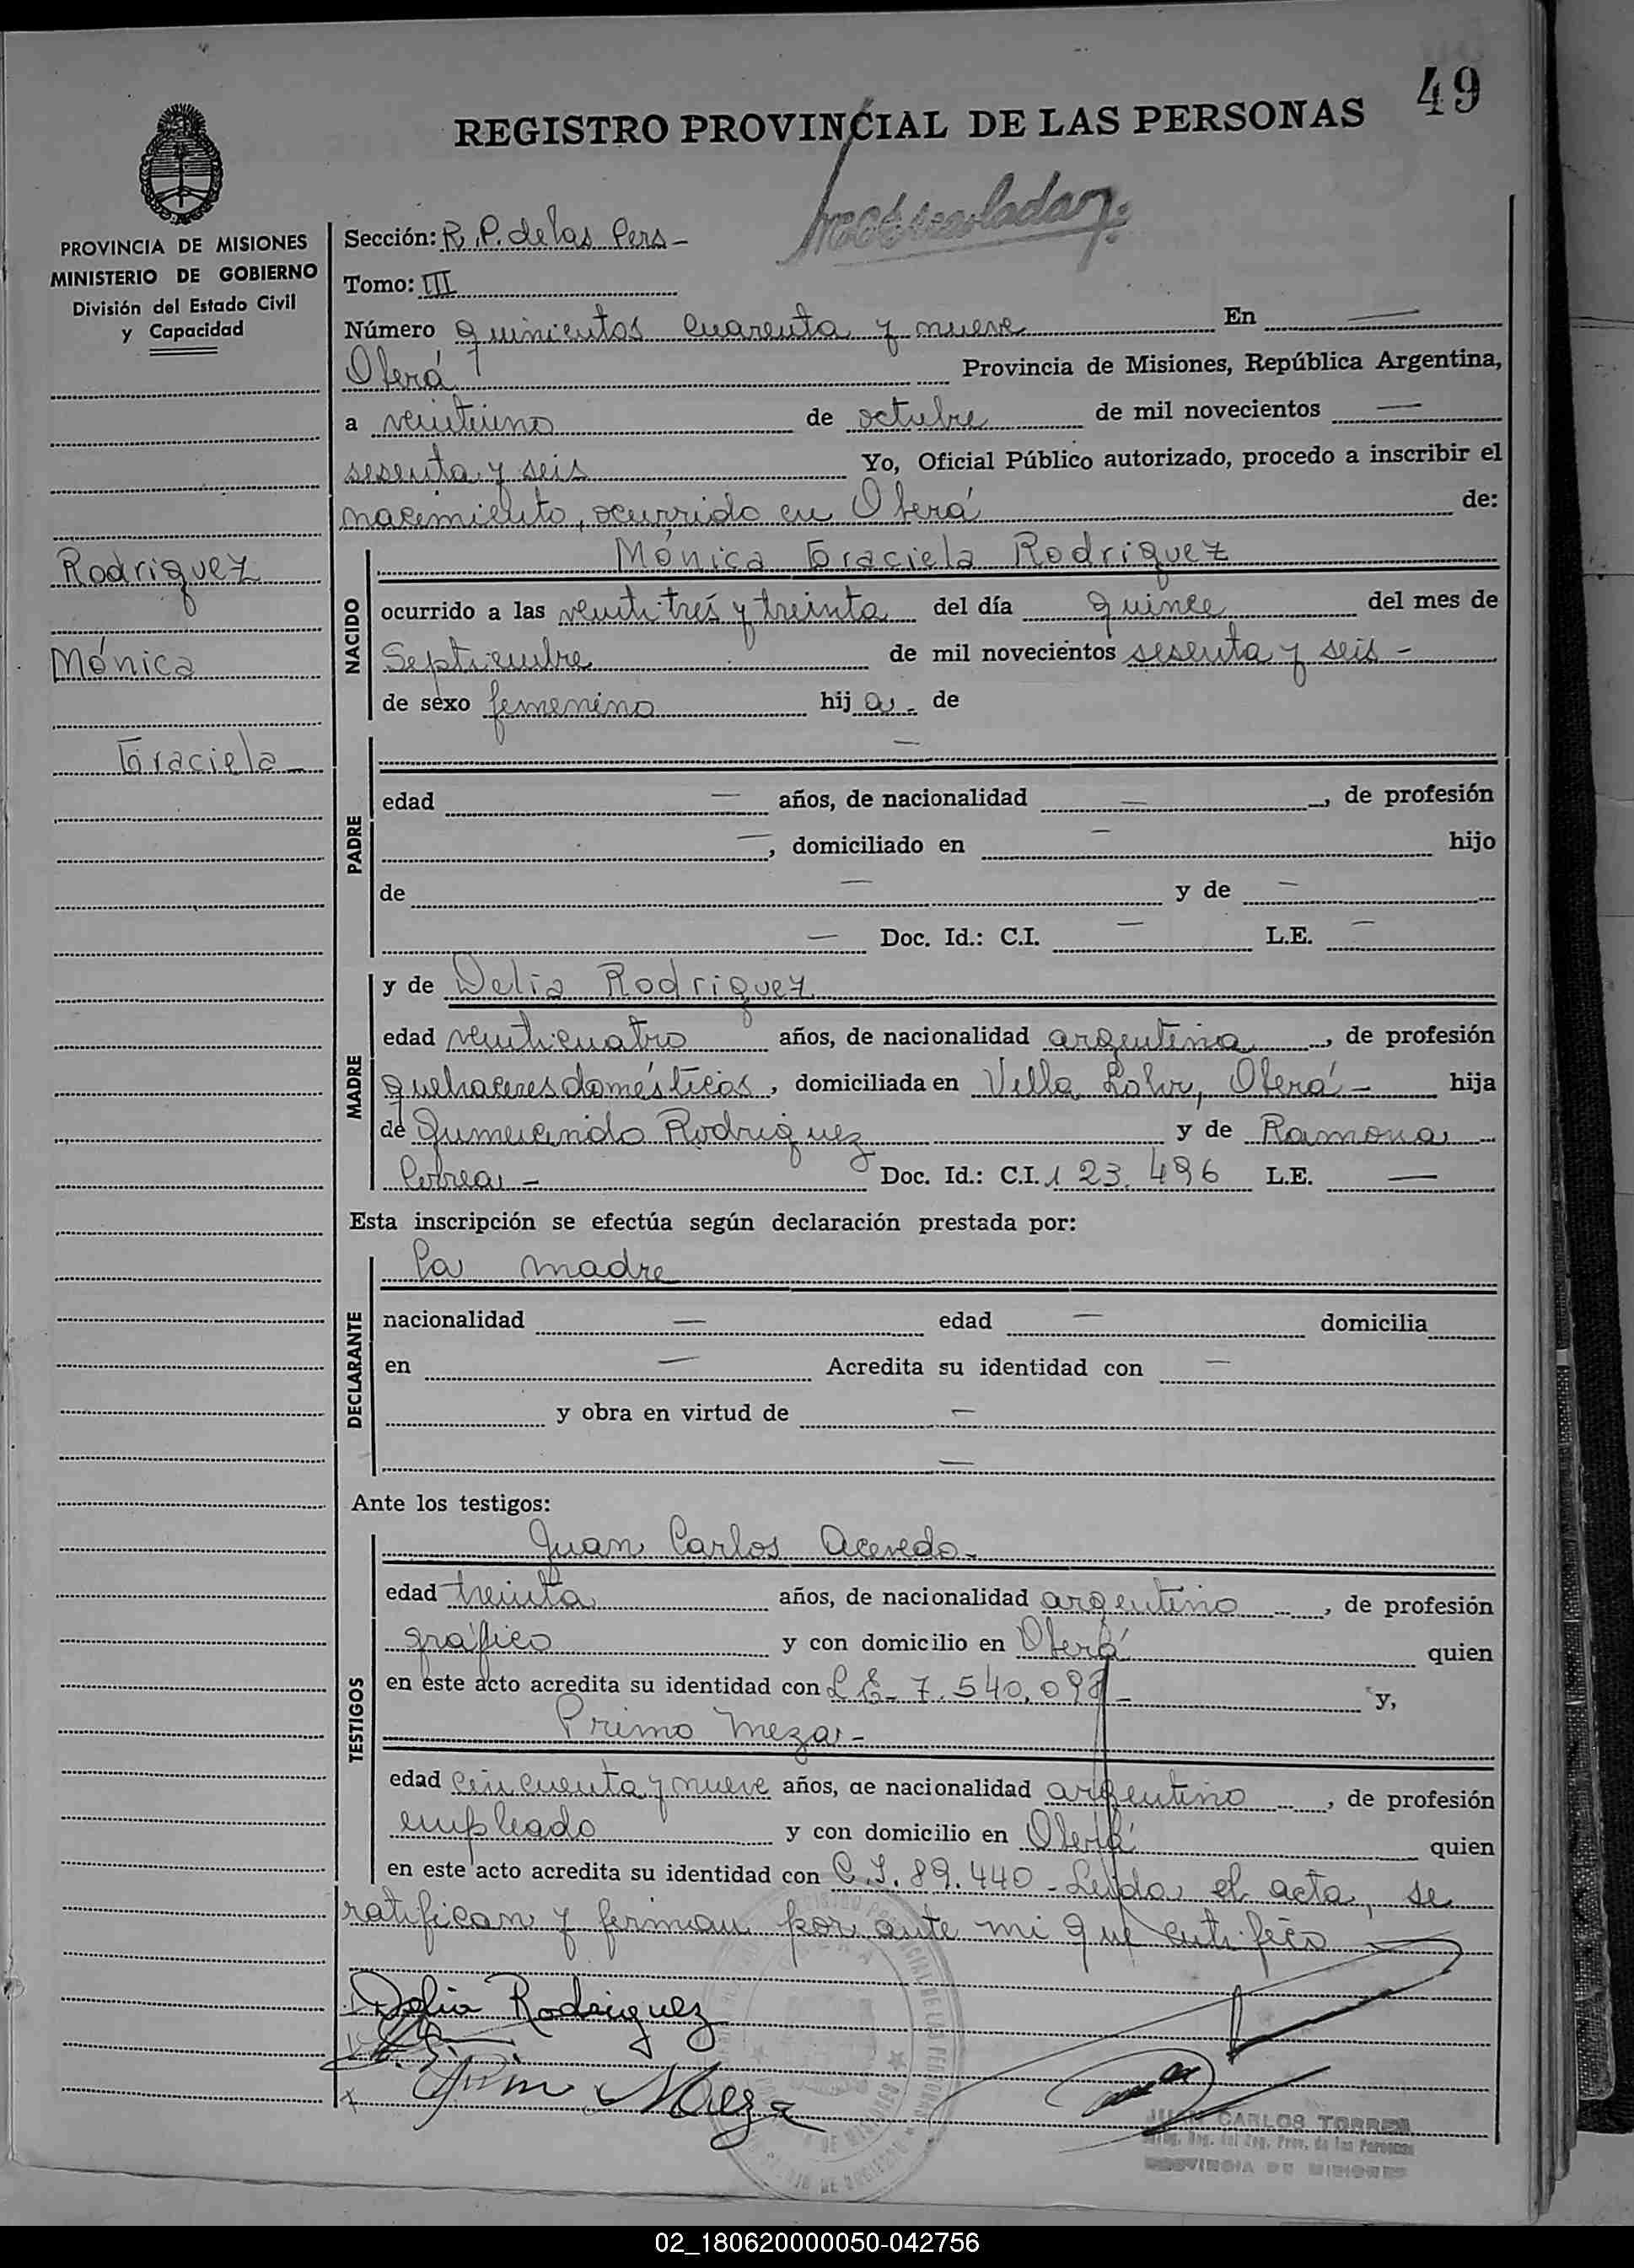 49
REGISTRO PROVINCIAL DE LAS PERSONAS
PROVINCIA DE MISIONES
MINISTERIO DE GOBIERNO
División del Estado Civil
y Capacidad
Rodriguez
Mónica
Graciela
Sección: R. P. de las Pers -
Tomo: III
Número quinientos cuarenta y nueve En —
Oberá Provincia de Misiones, República Argentina,
a veintiuno de octubre de mil novecientos —
sesenta y seis Yo, Oficial Público autorizado, procedo a inscribir el
nacimiento, ocurrido en Oberá de:
NACIDO
Mónica Graciela Rodriguez
ocurrido a las veinti trés y treinta del día quince del mes de
Septiembre de mil novecientos sesenta y seis -
de sexo femenino hij a - de
PADRE
—
edad — años, de nacionalidad —, de profesión
—, domiciliado en — hijo
de — y de —
— Doc. Id.: C.I. — L.E. —
MADRE
y de Delia Rodriguez
edad veinticuatro años, de nacionalidad argentina, de profesión
quehaceres domésticos, domiciliada en Villa Lohr, Oberá - hija
de Gumercindo Rodriguez y de Ramona
Correa - Doc. Id.: C.I. 123.496 L.E. —
Esta inscripción se efectúa según declaración prestada por:
DECLARANTE
la madre
nacionalidad — edad — domicilia
en — Acredita su identidad con —
y obra en virtud de —
—
Ante los testigos:
TESTIGOS
Juan Carlos Acevedo -
edad treinta años, de nacionalidad argentino, de profesión
gráfico y con domicilio en Oberá quien
en este acto acredita su identidad con L E - 7.540.098 - y,
Primo Meza -
edad cincuenta y nueve años, de nacionalidad argentino, de profesión
empleado y con domicilio en Oberá quien
en este acto acredita su identidad con C.I. 89.440 - Leida el acta, se
ratifican y firman por ante mi que certifico
Delia Rodriguez
Meza
JUAN CARLOS TORRES
PROVINCIA DE MISIONES
02_180620000050-042756